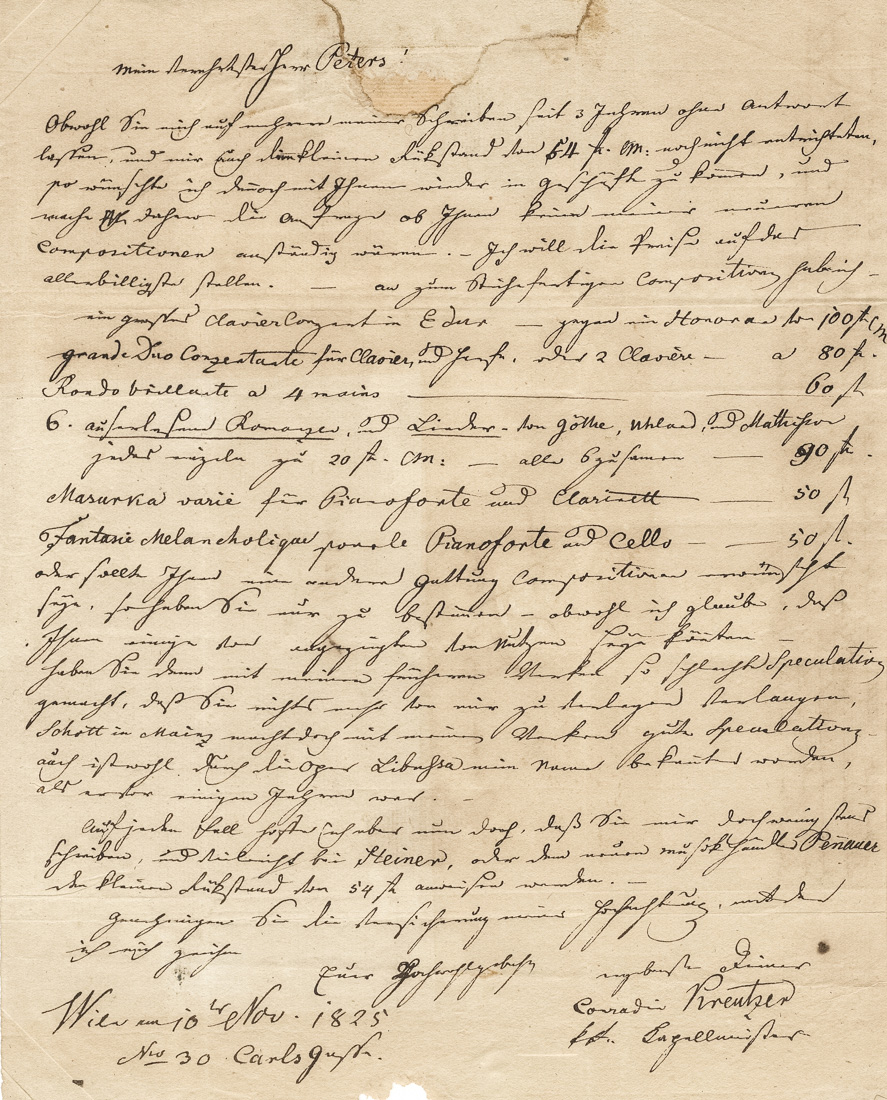 Mein verehrtester Herr Peters!
Obwohl Sie mich auf mehrere meiner Schreiben seit 3 Jahren ohne Antwort
lassen, und mir auch den kleinen Rükstand von 54 fl. CM: noch nicht entrichteten,
so wünschte ich dennoch mit Ihnen wieder in Geschäfte zu kommen, und
mache daher die Anfrage ob Ihnen keine meiner neueren
Compositionen anständig wären. – Ich will die Preise auf das
allerbilligste stellen. — an zum Stiche fertigen Compositionen habe ich –
ein großes Clavier Conzert in E dur — gegen ein Honorar von 100 fl CM
grande Duo Conzertante für Clavier, und Harfe, oder 2 Claviere — a 80 fl.
Rondo brillante a 4 mains — 60 fl
6. auserlesene Romanzen, und Lieder – von Göthe, Uhland, und Mathisson
jedes einzeln zu 20 fl. CM: — alle 6 zusamen — 90 fl.
Masurka varié für Pianoforte und Clarinett — 50 fl
Fantasie Melancholique pour le Pianoforte und Cello — 50 fl.
oder sollte Ihnen eine andere Gattung Compositionen erwünscht
seyn, so haben Sie nur zu bestimen – obwohl ich glaube, daß
Ihnen einige von angezeigten von Nutzen seyn könten –
haben Sie denn mit meinen früheren Werken so schlechte Speculation
gemacht, daß Sie nichts mehr von mir zu verlegen verlangen,
Schott in Mainz macht doch mit meinen Werken gute Speculationen –
auch ist wohl durch die Oper Libussa mein Name bekanter worden,
als er vor einigen Jahren war. –
Auf jeden Fall hoffe ich aber nun doch, daß Sie mir doch wenigstens
schreiben, und vieleicht bei Steiner, oder dem neuen Musikhändler Penauer
den kleinen Rükstand von 54 fl anweisen werden. –
Genehmigen Sie die Versicherung meiner Hochachtung, mit der
ich mich zeichne
Euer Hochwohlgeborn ergebenster Diener
Conradin Kreutzer
kk. Kapellmeister
Wien am 10ter Nov. 1825
Nro 30 Carls Gasse.